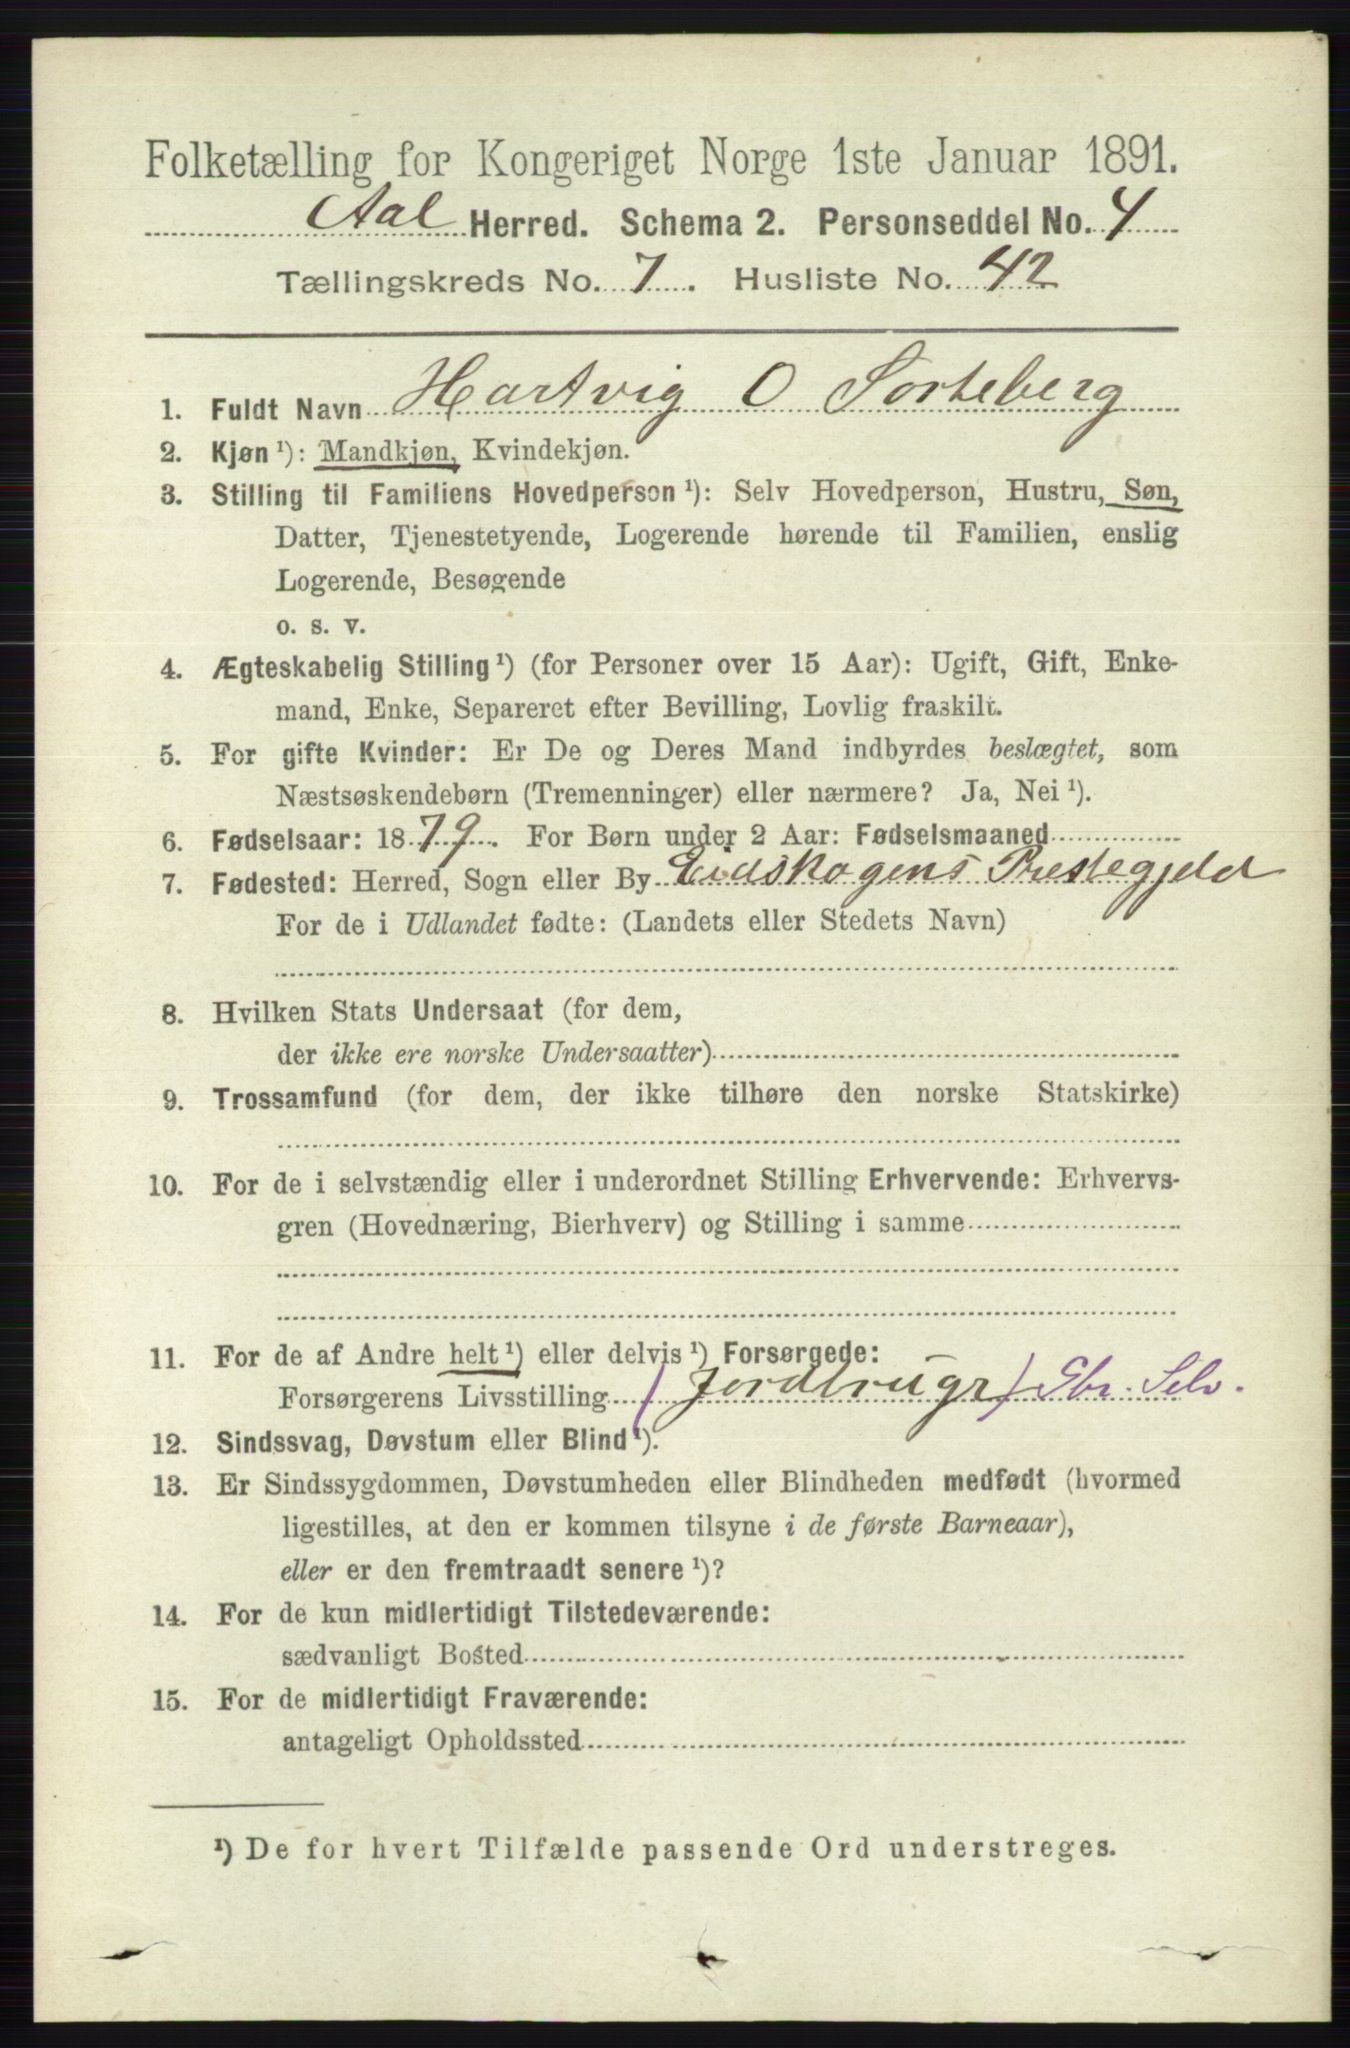 Folketælling for Kongeriget Norge 1ste Januar 1891.
Aal Herred. Schema 2. Personseddel No. 4
Tællingskreds No. 7. Husliste No. 42
1. Fuldt Navn Hartvig O Sorteberg
2. Kjøn ¹): Mandkjøn, Kvindekjøn.
3. Stilling til Familiens Hovedperson ¹): Selv Hovedperson, Hustru, Søn,
Datter, Tjenestetyende, Logerende hørende til Familien, enslig
Logerende, Besøgende
o. s. v.
4. Ægteskabelig Stilling ¹) (for Personer over 15 Aar): Ugift, Gift, Enke-
mand, Enke, Separeret efter Bevilling, Lovlig fraskilt.
5. For gifte Kvinder: Er De og Deres Mand indbyrdes beslægtet, som
Næstsøskendebørn (Tremenninger) eller nærmere? Ja, Nei ¹).
6. Fødselsaar: 1879. For Børn under 2 Aar: Fødselsmaaned
7. Fødested: Herred, Sogn eller By Eidskogens Prestegjeld
For de i Udlandet fødte: (Landets eller Stedets Navn)
8. Hvilken Stats Undersaat (for dem,
der ikke ere norske Undersaatter)
9. Trossamfund (for dem, der ikke tilhøre den norske Statskirke)
10. For de i selvstændig eller i underordnet Stilling Erhvervende: Erhvervs-
gren (Hovednæring, Bierhverv) og Stilling i samme
11. For de af Andre helt ¹) eller delvis ¹) Forsørgede:
Forsørgerens Livsstilling (Jordbrugr) Gbr. Selv.
12. Sindssvag, Døvstum eller Blind ¹).
13. Er Sindssygdommen, Døvstumheden eller Blindheden medfødt (hvormed
ligestilles, at den er kommen tilsyne i de første Barneaar),
eller er den fremtraadt senere ¹)?
14. For de kun midlertidigt Tilstedeværende:
sædvanligt Bosted
15. For de midlertidigt Fraværende:
antageligt Opholdssted
¹) De for hvert Tilfælde passende Ord understreges.